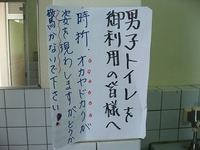 男子トイレを
御利用の皆様へ
時折、オカヤドカリが
姿を現わしますが、どうか
驚かないで下さい!